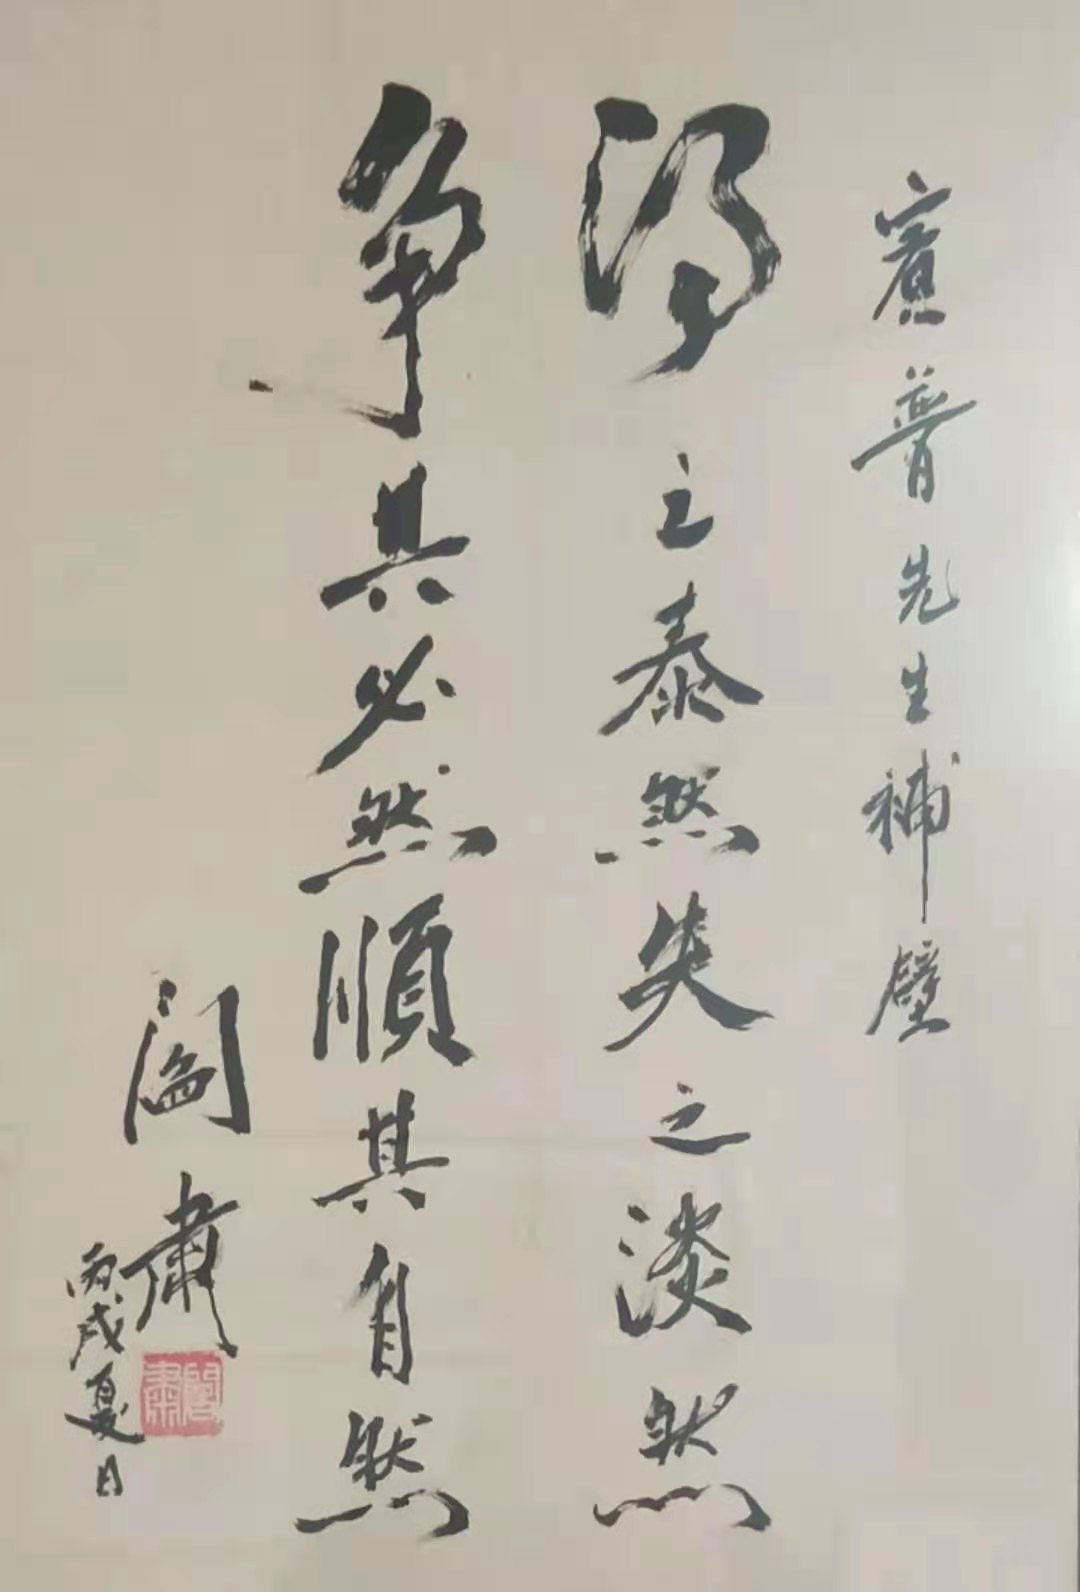 賓普先生補壁
得之泰然失之淡然
争其必然順其自然
閻肅
丙戌夏日
閻肅